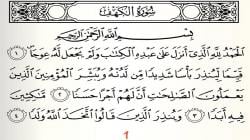 سُورَةُ الْكَهْفِ
بِسْمِ اللَّهِ الرَّحْمَٰنِ الرَّحِيمِ
الْحَمْدُ لِلَّهِ الَّذِي أَنزَلَ عَلَىٰ عَبْدِهِ الْكِتَابَ وَلَمْ يَجْعَل لَّهُ عِوَجَا ۜ ١
قَيِّمًا لِّيُنذِرَ بَأْسًا شَدِيدًا مِّن لَّدُنْهُ وَيُبَشِّرَ الْمُؤْمِنِينَ الَّذِينَ
يَعْمَلُونَ الصَّالِحَاتِ أَنَّ لَهُمْ أَجْرًا حَسَنًا ٢ مَّاكِثِينَ
فِيهِ أَبَدًا ٣ وَيُنذِرَ الَّذِينَ قَالُوا اتَّخَذَ اللَّهُ وَلَدًا ٤
1